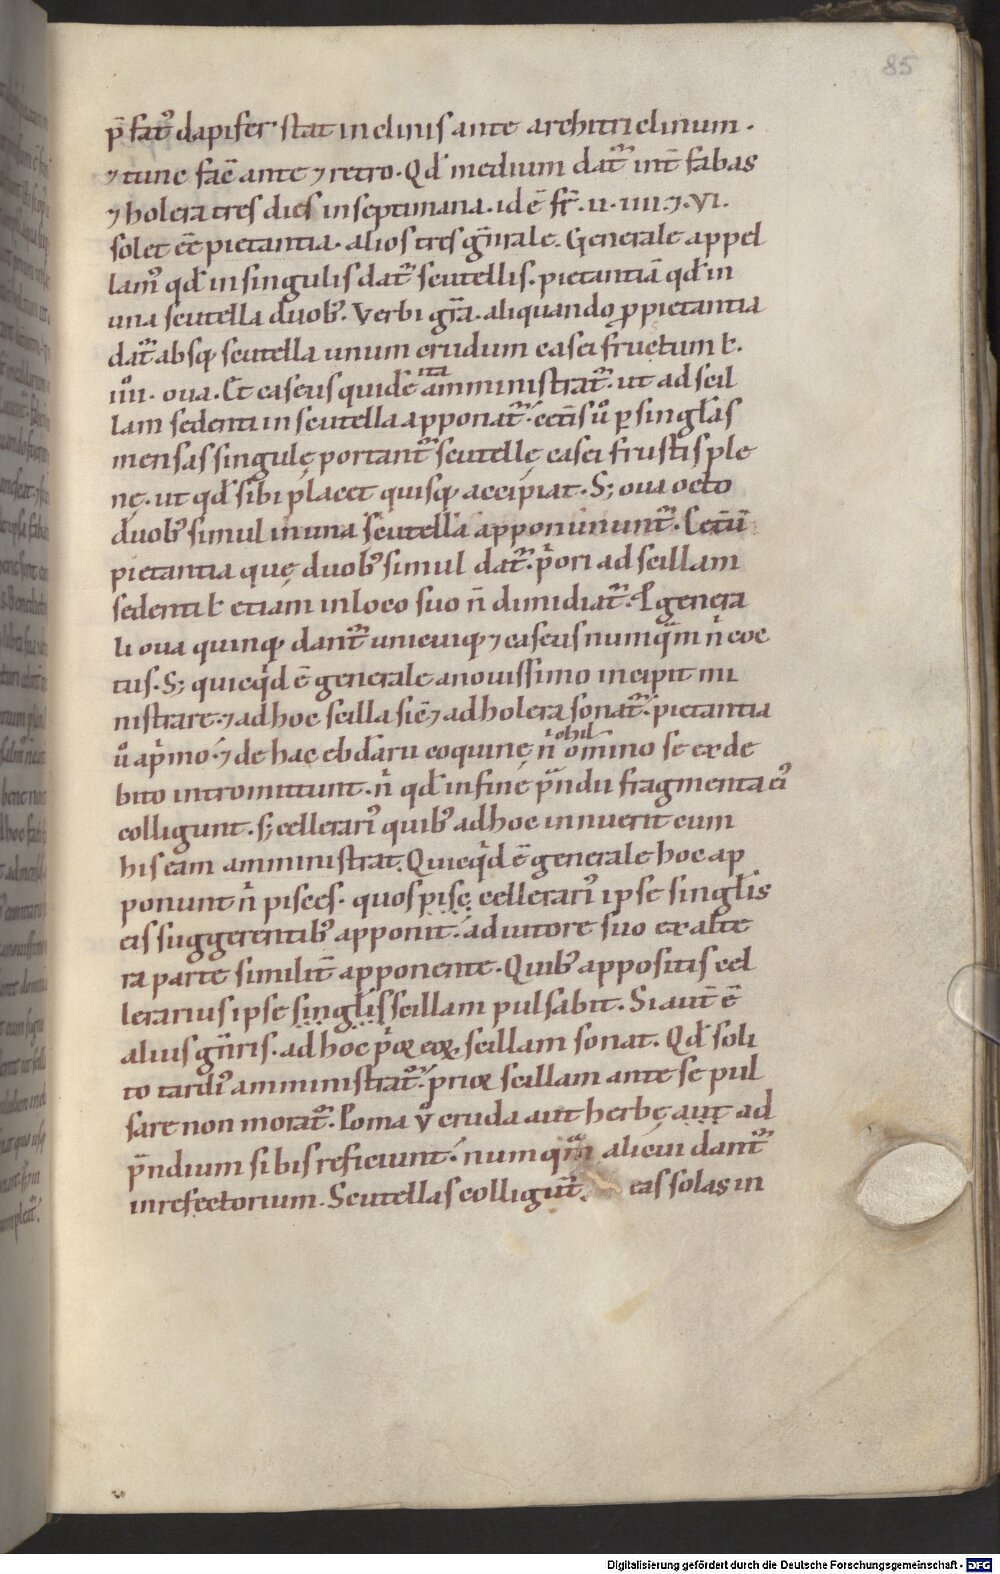 85
p̄fat᷒ dapifer stat inclinis ante architriclinum.
⁊ tunc facē ante ⁊ retro. Qđ medium dat᷒ int̄ fabas
⁊ holera tres dies in septimana. id ē fr̄. ii. iiii. ⁊. vi.
solet eē pietantia. alios tres gn̄rale. Generale appel
lam᷒ qđ in singulis dat᷒ scutellis. pietantiā qđ in
una scutella duob᷒. Verbi gr̄a. aliquando ꝓ pietantia
dat᷒ absq; scutella unum crudum casei fructum ł.
iiii᷒. oua. Et caseus quidē ita amministrat᷒. ut ad scil
lam sedenti in scutella apponat᷒. cet̄is ů ꝑ singłas
mensas singulę portant᷒ scutellę casei frustis ple
nę. ut qđ sibi placet quisq; accipiat. S; oua octo
duob᷒ simul in una scutella apponununt᷒. Cet̄ū
pietantia quę duob᷒ simul dat᷒. p̓ori ad scillam
sedenti ł etiam in loco suo n̄ dimidiat᷒. ꝓ genera
li oua quinq; dant᷒ unicuiq; ⁊ caseus numq̄m n̓ coc
tus. S; quicq̓d ē generale a nouissimo incipit mi
nistrare. ⁊ ad hoc scilla sic̄ ⁊ ad holera sonat᷒. pietantia
ů a p̓mo. ⁊ de hac ebdam̄ coquinę n̓chil omīno se ex de
bito intromittunt. n̓ qđ in fine p̄ndii fragmenta ei᷒
colligunt. s; cellerari᷒ quib᷒ ad hoc innuerit cum
his eam amministrat. Quicq̓d ē generale hoc ap
ponunt n̓ pisces. quos pisc̣ẹ cellerari᷒ ipse singłis
eis suggerentib᷒ apponit. adiutore suo ex alte
ra parte similit̄ apponente. Quib᷒ appositis cel
lerarius ipse singłis scillam pulsabit. Si aut̄ ē
alius gn̄ris. ad hoc p̓oꝝ eoꝝ scillam sonat. Qđ soli
to tardi᷒ amministrat᷒. prioꝝ scillam ante se pul
sare non morat᷒. Poma ů cruda aut herbę aut ad
p̄ndium si bis reficiunt. numq̄m alicui dant᷒
in refectorium. Scutellas colligūt. eas solas in
Digitalisierung gefördert durch die Deutsche Forschungsgemeinschaft - DFG